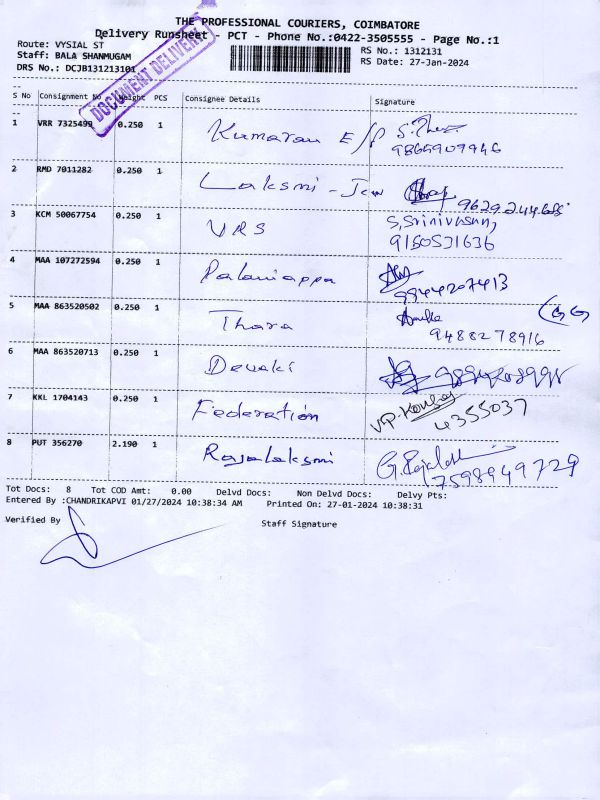 THE PROFESSIONAL COURIERS, COIMBATORE
Delivery Runsheet - PCT - Phone No.:0422-3505555 - Page No.:1
Route: VYSIAL ST
RS No.: 1312131
Staff: BALA SHANMUGAM
RS Date: 27-Jan-2024
DRS No.: DCJB131213101
DOCUMENT DELIVERY
S No Consignment No Weight PCS Consignee Details Signature
1 VRR 7325499 0.250 1 Kumaran E/P
9865909946
2 RMD 7011282 0.250 1 Laksmi - Jew
3 KCM 50067754 0.250 1 VRS S, Srinivasan,
9150531636
4 MAA 107272594 0.250 1 Palaniappa
9844207413
5 MAA 863520502 0.250 1 Thara
9488278916
6 MAA 863520713 0.250 1 Devaki
7 KKL 1704143 0.250 1 Federation V.P.
4355037
8 PUT 356270 2.190 1 Rajalaksmi
7598949729
Tot Docs: 8 Tot COD Amt: 0.00 Delvd Docs: Non Delvd Docs: Delvy Pts:
Entered By :CHANDRIKAPVI 01/27/2024 10:38:34 AM Printed On: 27-01-2024 10:38:31
Verified By
Staff Signature